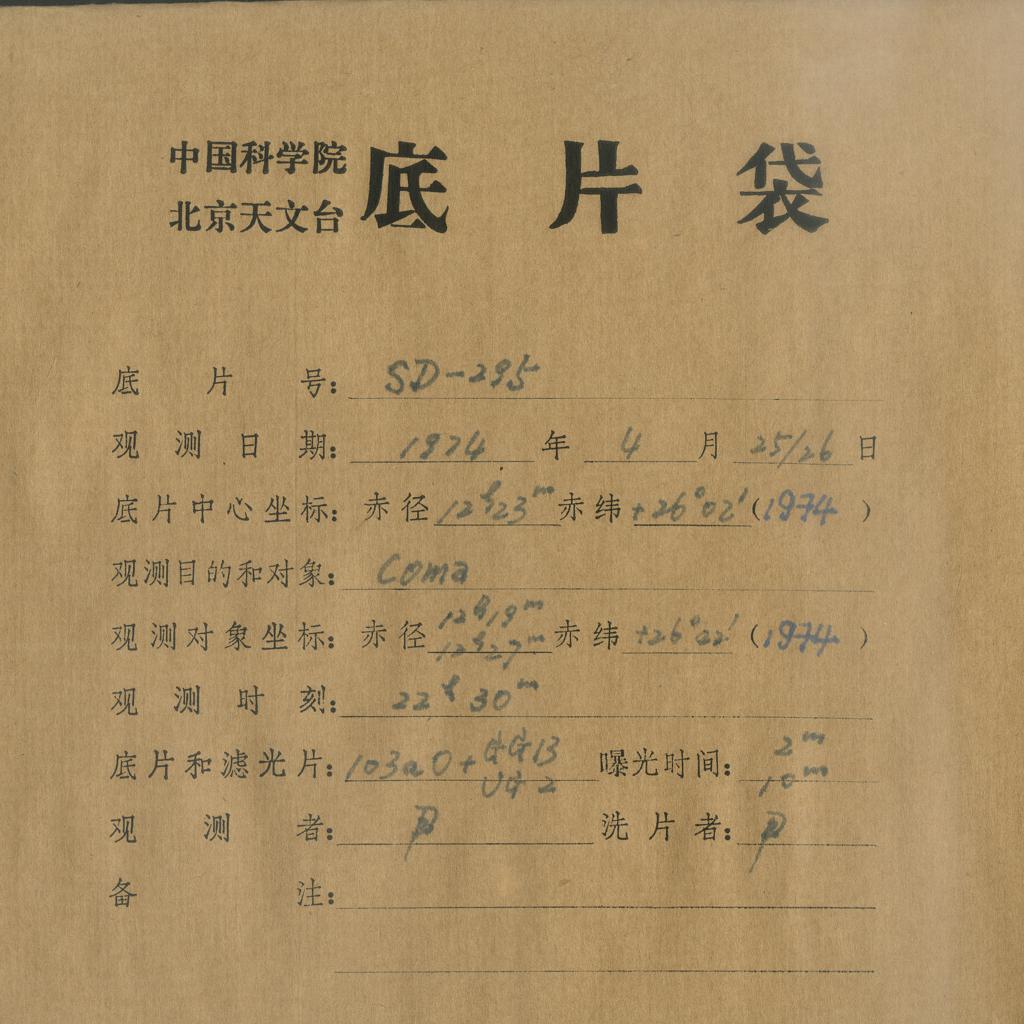 中国科学院
北京天文台
底片袋
底片号: SD-295
观测日期: 1974 年 4 月 25/26 日
底片中心坐标: 赤径 12h23m 赤纬 +26°02′ (1974)
观测目的和对象: Coma
观测对象坐标: 赤径 12h19m 12h27m 赤纬 +26°22′ (1974)
观测时刻: 22h 30m
底片和滤光片: 103aO+GG13 UG2 曝光时间: 2m 10m
观测者: 洗片者:
备注: